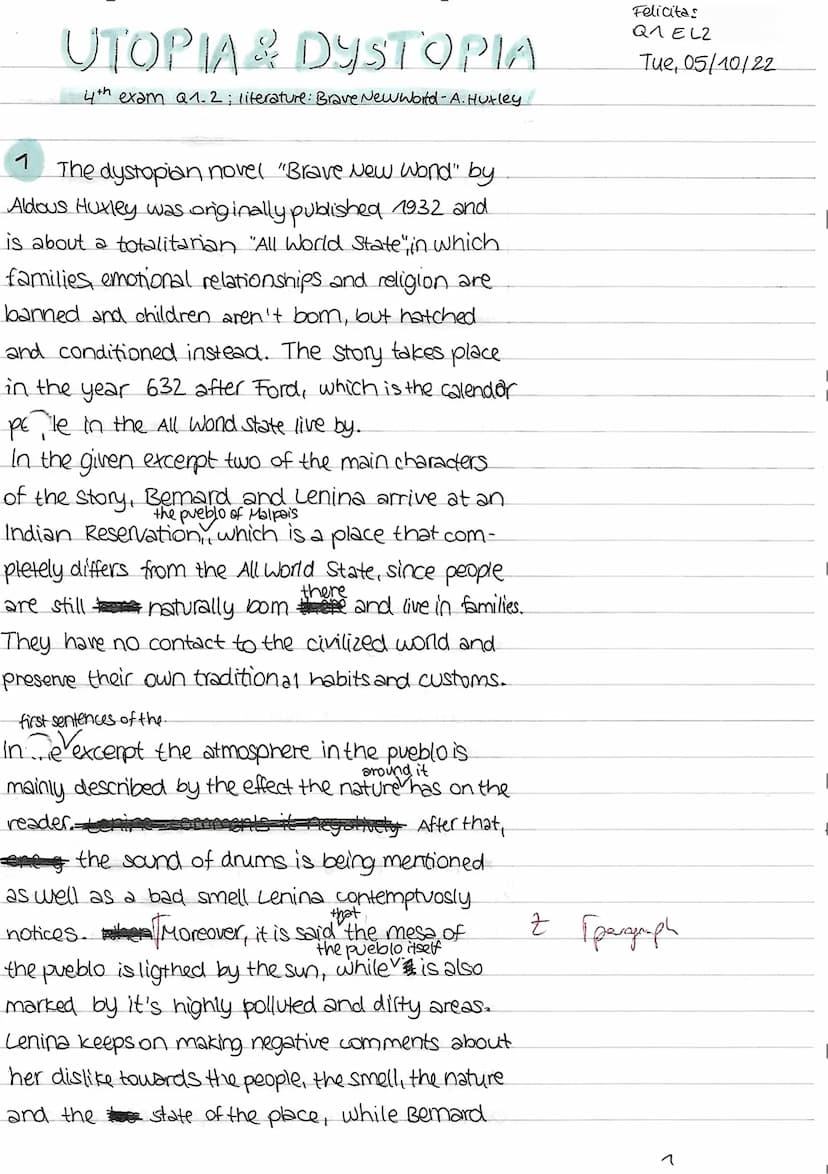 Felicitas
Q1 EL2
Tue, 05/10/22
UTOPIA & DYSTOPIA
4th exam Q1.2; literature: Brave New World - A. Huxley
1 The dystopian novel "Brave New World" by
Aldous Huxley was originally published 1932 and
is about a totalitarian "All World State", in which
families, emotional relationships and religion are
banned and children aren't born, but hatched
and conditioned instead. The story takes place
in the year 632 after Ford, which is the calendar
le in the All World State live by.
In the given excerpt two of the main characters
of the story, Bernard and Lenina arrive at an
the pueblo of Malpais
Indian Reservation, which is a place that com-
pletely differs from the All World State, since people
there
are still naturally born and live in families.
They have no contact to the civilized world and
preserve their own traditional habits and customs.
first sentences of the
In excerpt the atmosphere in the pueblo is
around it
mainly described by the effect the nature has on the
reader. Lenina comments it negatively After that,
the sound of drums is being mentioned
as well as a bad smell Lenina contemptuously
that
notices. Moreover, it is said the mesa of
Z paragraph
the pueblo itself
the pueblo is ligthed by the sun, while is also
marked by it's highly polluted and dirty areas.
Lenina keeps on making negative comments about
her dislike towards the people, the smell, the nature
and the state of the place, while Bernard
1